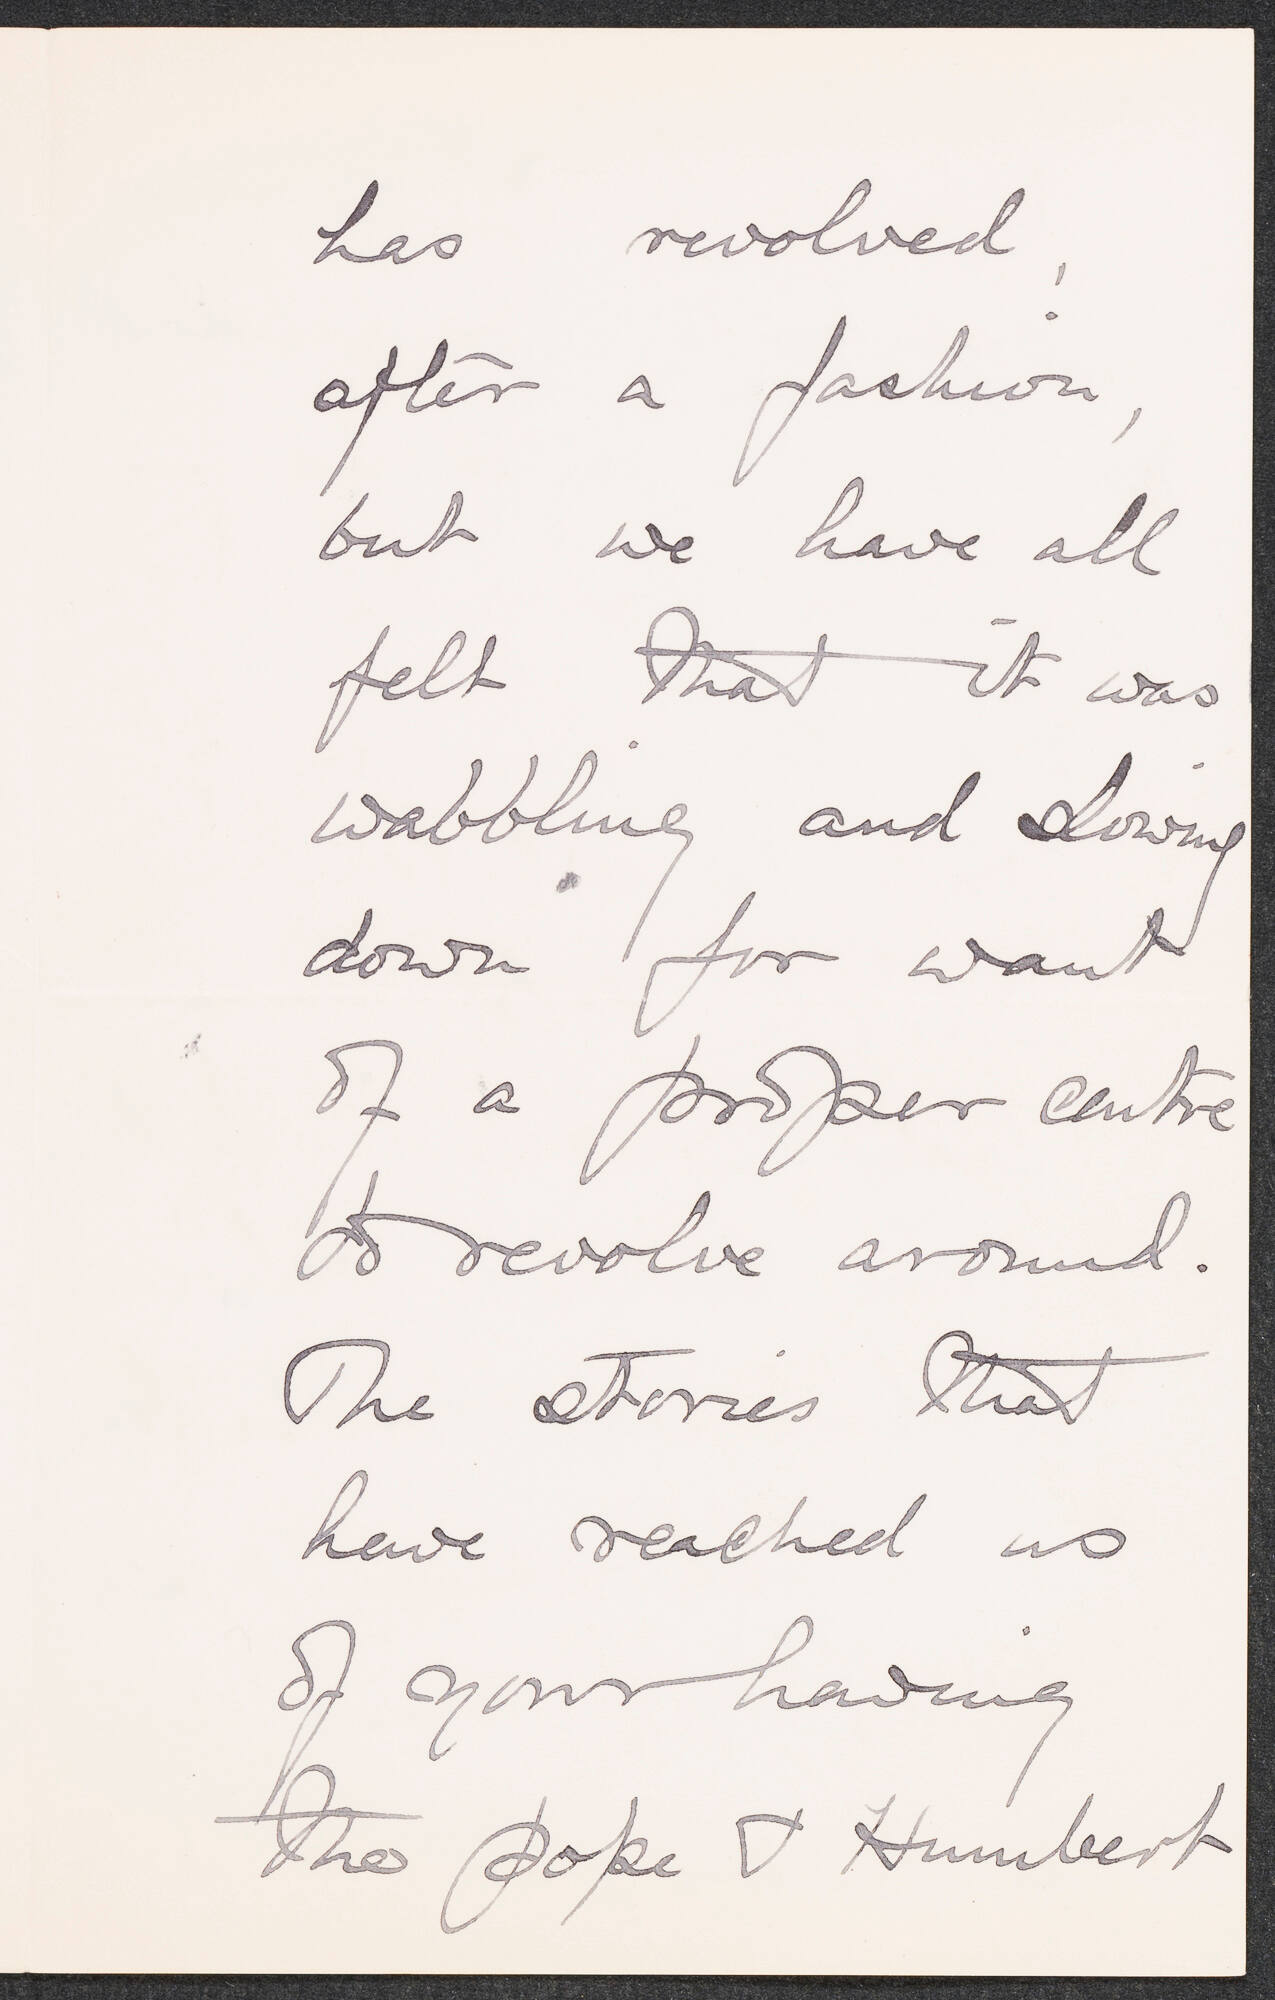 has revolved,
after a fashion,
but we have all
felt that it was
wabbling and slowing
down for want
of a proper centre
to revolve around.
The stories that
have reached us
of your having
the pope & Humbert